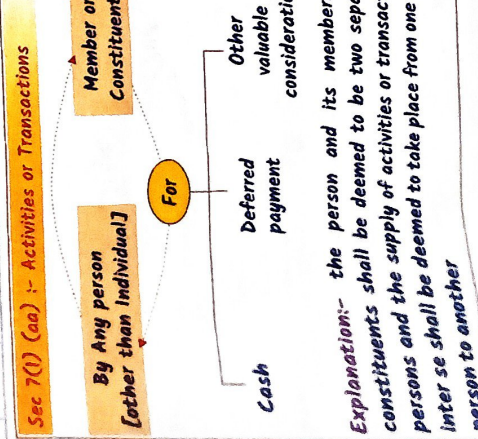 Sec 7(1) (aa) :- Activities or Transactions
By Any person
[other than Individual]
Member or
Constituent
For
Cash
Deferred
payment
Other
valuable
considerati
Explanation:- the person and its member
constituents shall be deemed to be two sepa
persons and the supply of activities or transac
inter se shall be deemed to take place from one
person to another